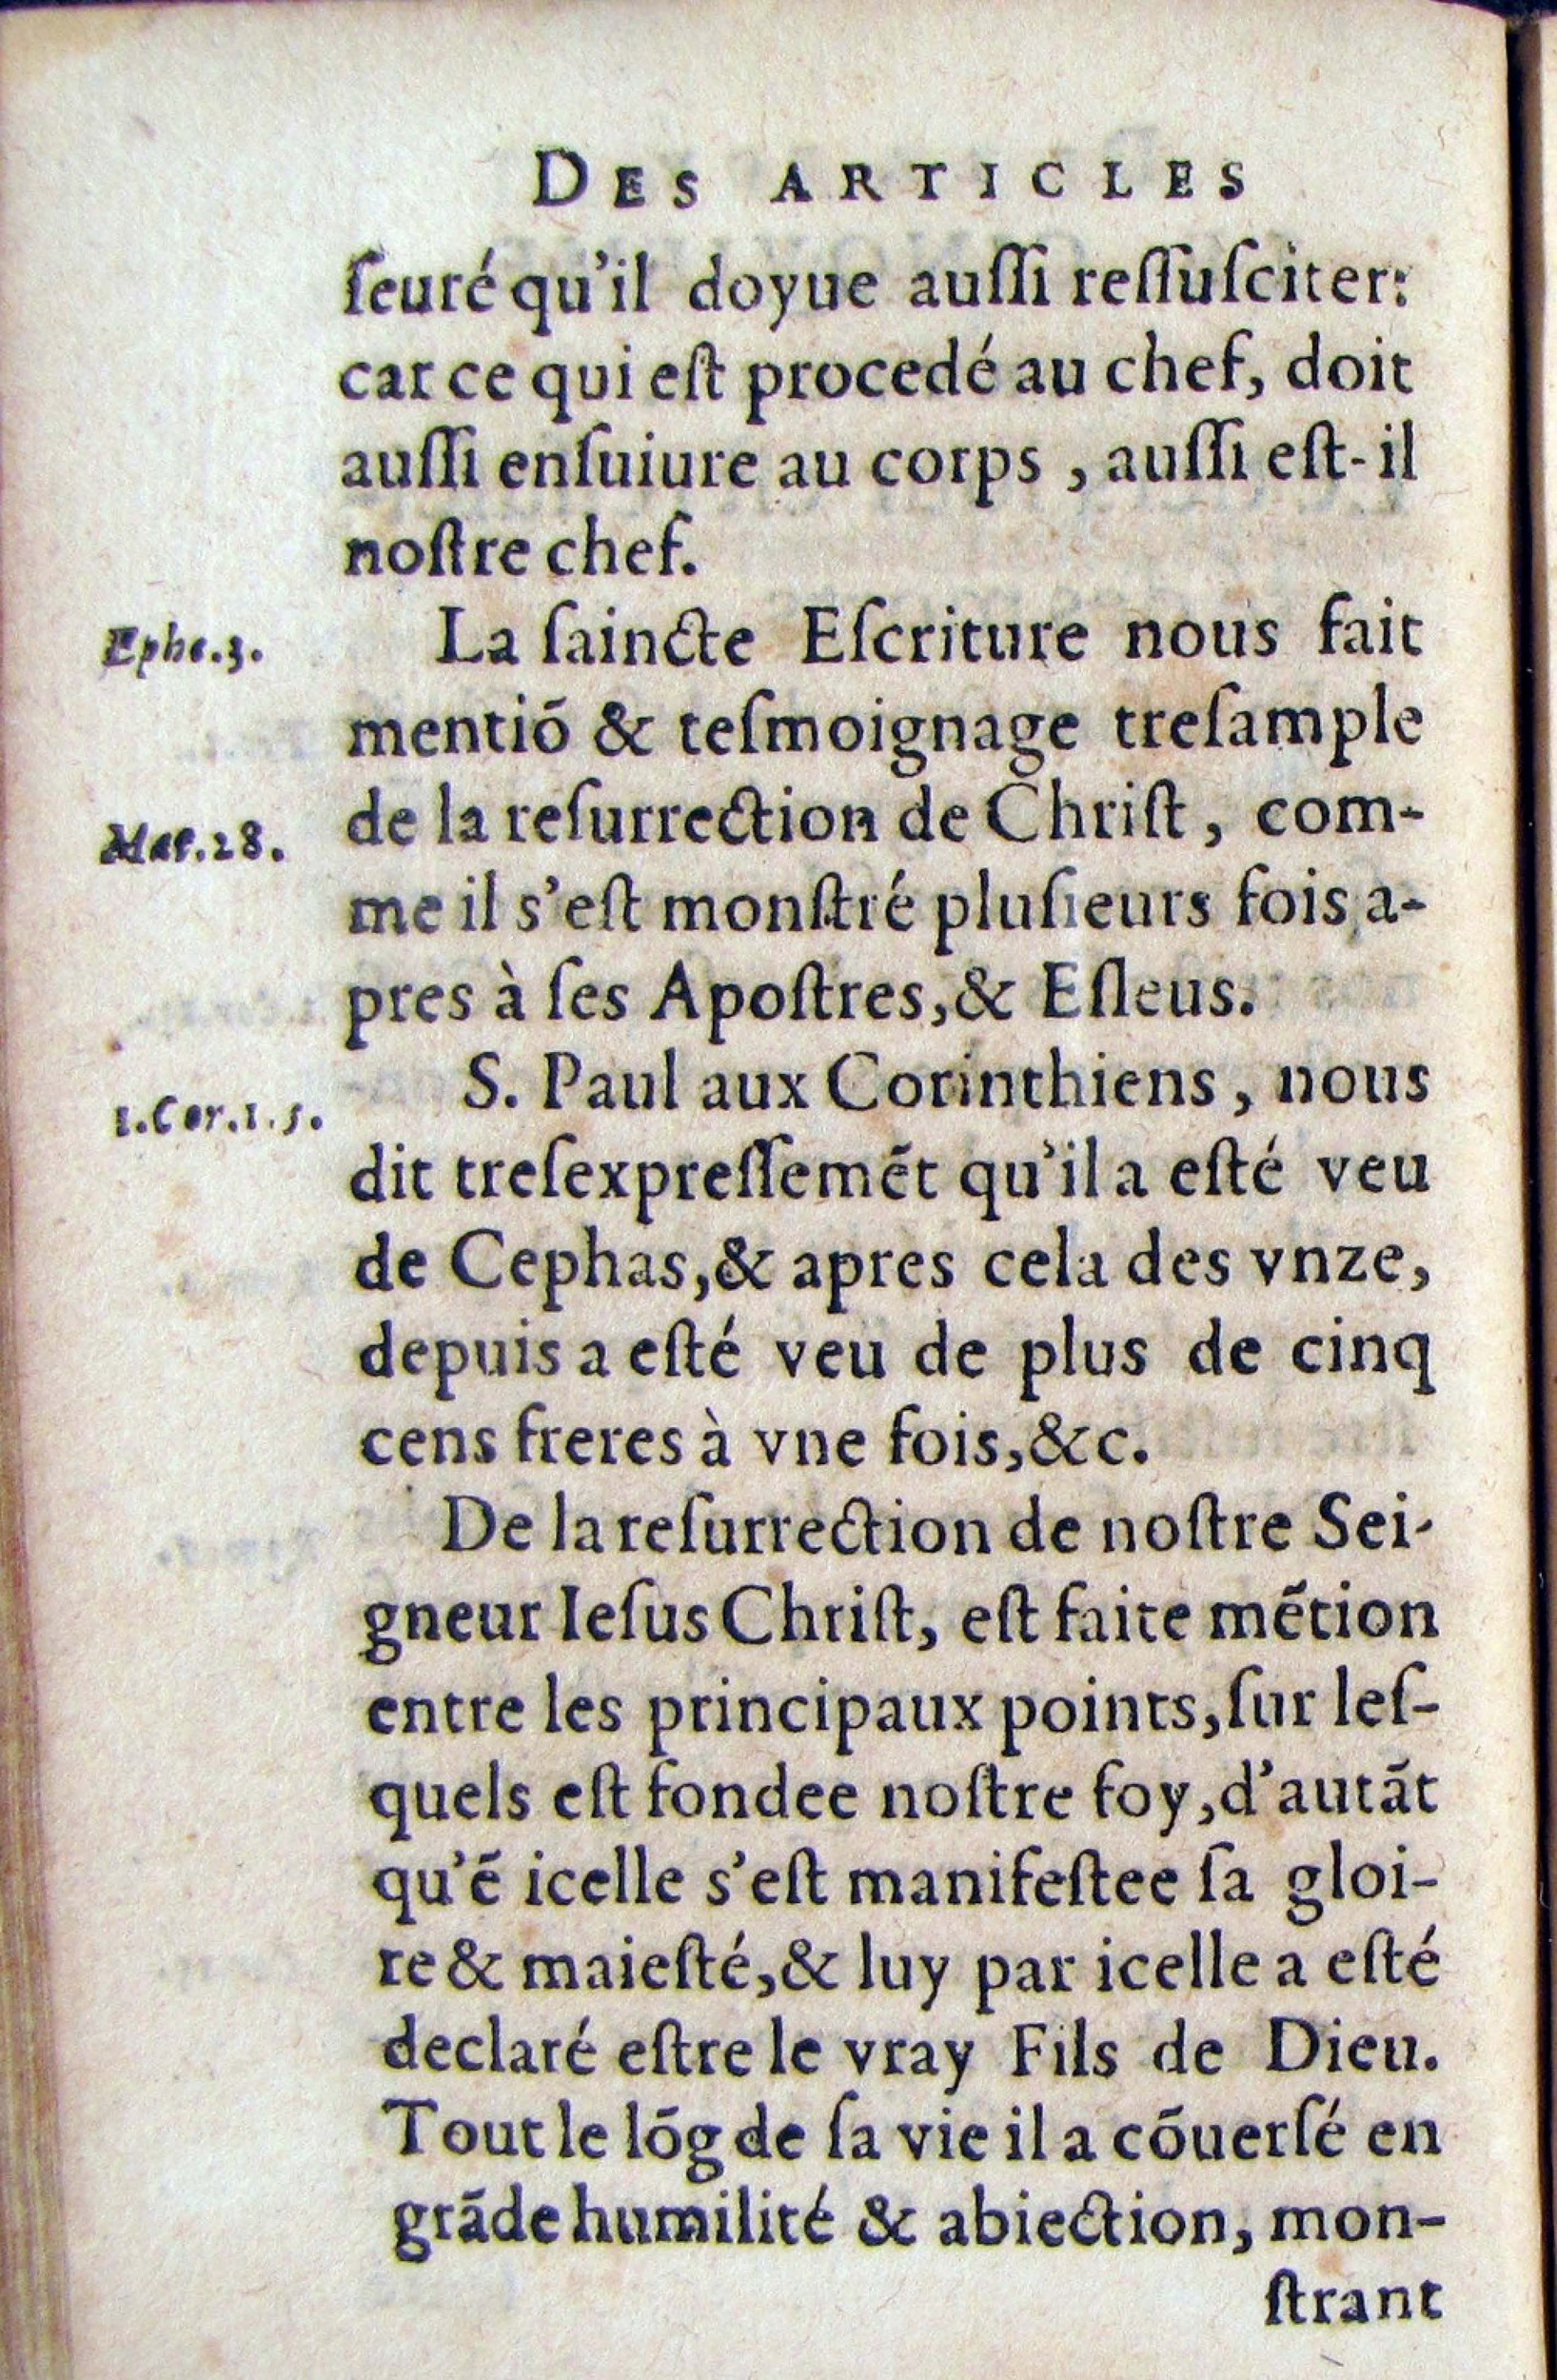 DES ARTICLES
ſeuré qu'il doyue auſſi reſſuſciter:
car ce qui eſt procedé au chef, doit
auſſi enſuiure au corps , auſſi eſt-il
noſtre chef.
Ephe.3.
La ſaincte Eſcriture nous fait
mentiõ & teſmoignage treſample
Mat.28.
de la reſurrection de Chriſt, com-
me il s'eſt monſtré pluſieurs fois a-
pres à ſes Apoſtres,& Eſleus.
1.Cor.1.5.
S. Paul aux Corinthiens, nous
dit treſexpreſſemẽt qu'il a eſté veu
de Cephas,& apres cela des vnze,
depuis a eſté veu de plus de cinq
cens freres à vne fois,&c.
De la reſurrection de noſtre Sei-
gneur Ieſus Chriſt, eſt faite mẽtion
entre les principaux points,ſur leſ-
quels eſt fondee noſtre foy,d'autãt
qu'ẽ icelle s'eſt manifeſtee ſa gloi-
re & maieſté,& luy par icelle a eſté
declaré eſtre le vray Fils de Dieu.
Tout le lõg de ſa vie il a cõuerſé en
grãde humilité & abiection, mon-
ſtrant